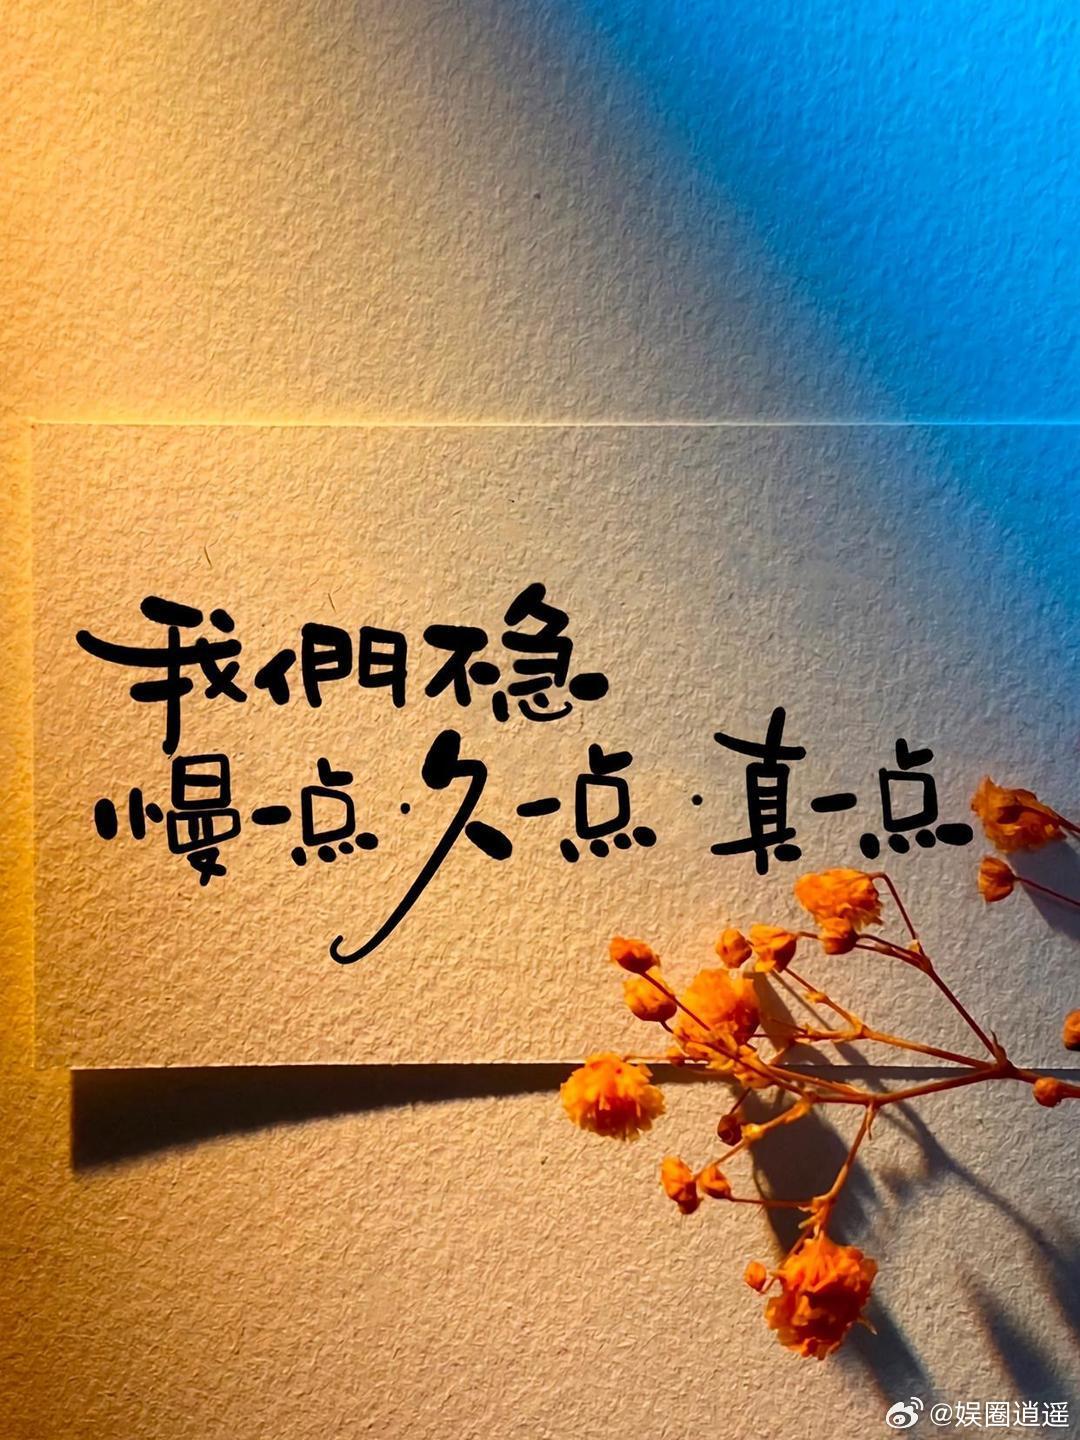 我們不稳
慢一点·久一点·真一点
@娱圈逍遥